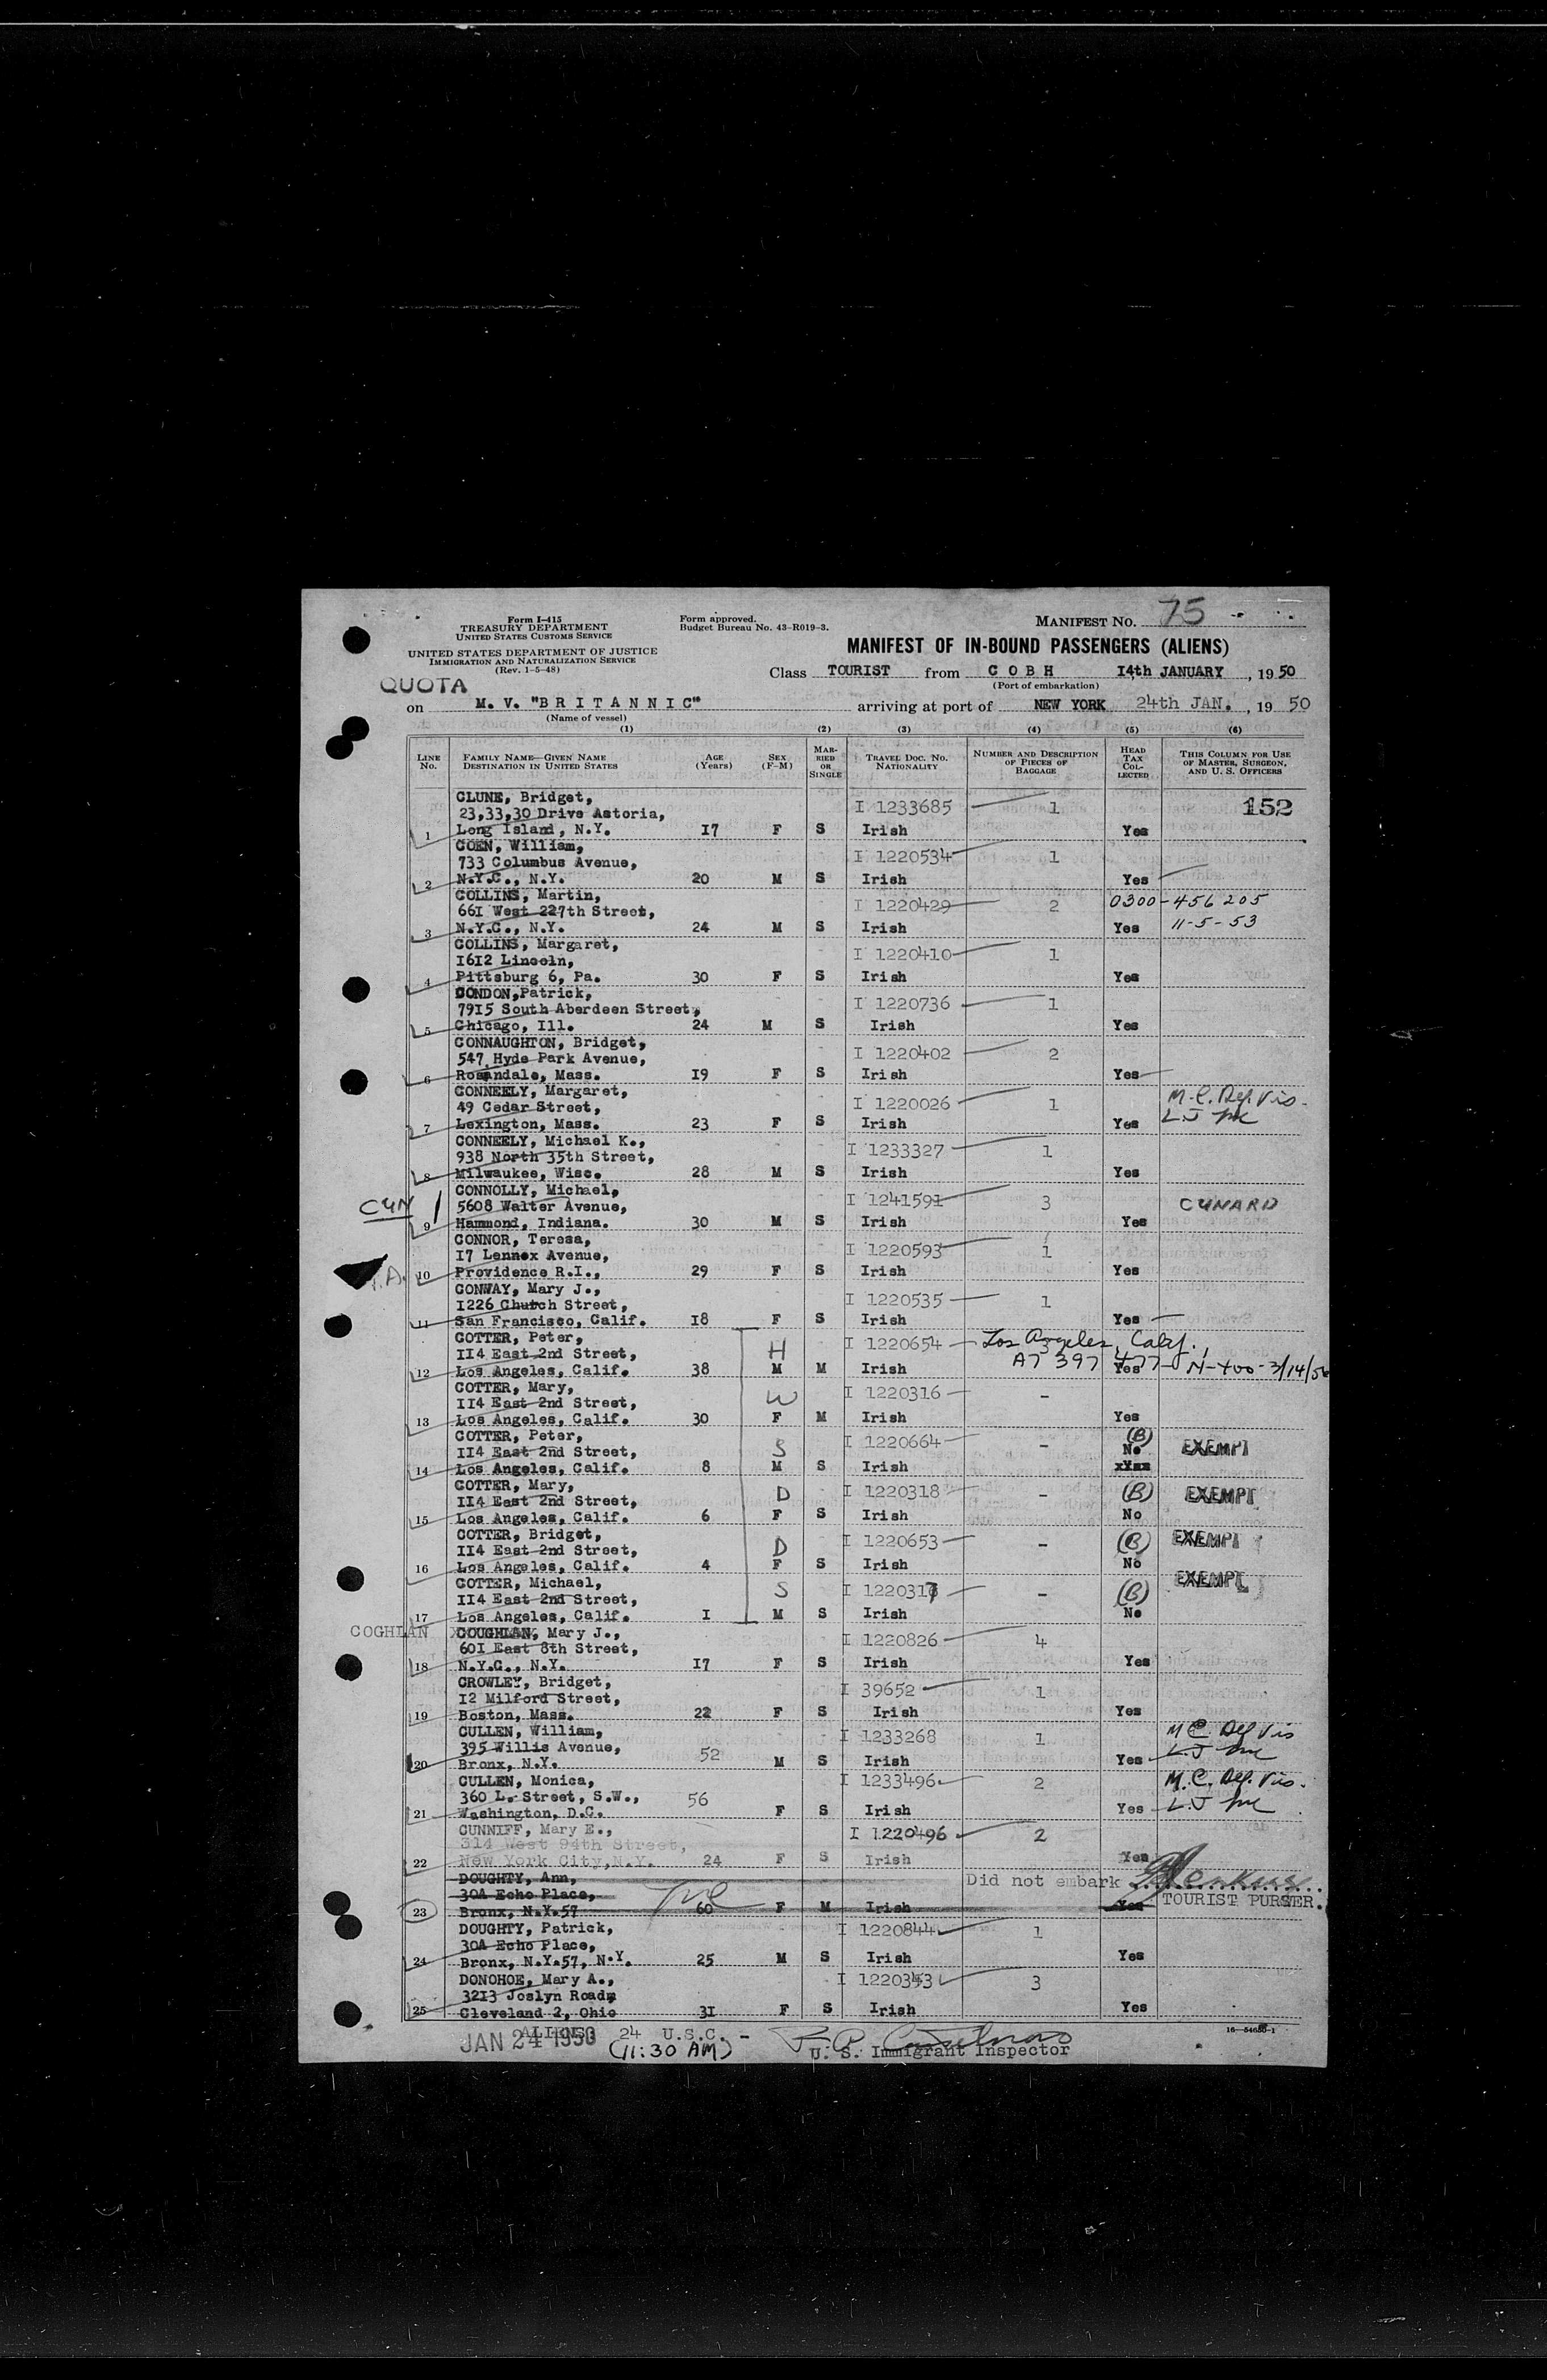 Form I-415
TREASURY DEPARTMENT
UNITED STATES CUSTOMS SERVICE
UNITED STATES DEPARTMENT OF JUSTICE
IMMIGRATION AND NATURALIZATION SERVICE
(Rev. 1-5-48)
Form approved.
Budget Bureau No. 43-R019-3.
MANIFEST NO. 75
MANIFEST OF IN-BOUND PASSENGERS (ALIENS)
Class TOURIST from C O B H 14th JANUARY, 1950
(Port of embarkation)
QUOTA
on M. V. "B R I T A N N I C" arriving at port of NEW YORK 24th JAN., 1950
(Name of vessel)
(1) (2) (3) (4) (5) (6)
LINE NO. FAMILY NAME—GIVEN NAME DESTINATION IN UNITED STATES AGE (Years) SEX (F-M) MARRIED OR SINGLE TRAVEL DOC. NO. NATIONALITY NUMBER AND DESCRIPTION OF PIECES OF BAGGAGE HEAD TAX COLLECTED THIS COLUMN FOR USE OF MASTER, SURGEON, AND U. S. OFFICERS
CLUNE, Bridget, I 1233685 1 152
23,33,30 Drive Astoria,
1 Long Island, N.Y. 17 F S Irish Yes
COEN, William, I 1220534 1
733 Columbus Avenue,
2 N.Y.C., N.Y. 20 M S Irish Yes
COLLINS, Martin, I 1220429 2 0300-456205
661 West 227th Street,
3 N.Y.C., N.Y. 24 M S Irish Yes 11-5-53
COLLINS, Margaret, I 1220410 1
1612 Lincoln,
4 Pittsburg 6, Pa. 30 F S Irish Yes
CONDON,Patrick, I 1220736 1
7915 South Aberdeen Street,
5 Chicago, Ill. 24 M S Irish Yes
CONNAUGHTON, Bridget, I 1220402 2
547 Hyde Park Avenue,
6 Rosandale, Mass. 19 F S Irish Yes
CONNEELY, Margaret, I 1220026 1 M.C. Def. Vis.
49 Cedar Street, L.J
7 Lexington, Mass. 23 F S Irish Yes
CONNEELY, Michael K., I 1233327 1
938 North 35th Street,
8 Milwaukee, Wisc. 28 M S Irish Yes
CONNOLLY, Michael, I 1241591 3 CUNARD
CUN 5608 Walter Avenue,
9 Hammond, Indiana. 30 M S Irish Yes
CONNOR, Teresa, I 1220593 1
17 Lennox Avenue,
10 Providence R.I., 29 F S Irish Yes
CONWAY, Mary J., I 1220535 1
1226 Church Street,
11 San Francisco, Calif. 18 F S Irish Yes
COTTER, Peter, H I 1220654 Los Angeles, Calif.
114 East 2nd Street, A7 397 477 - N-400-3/14/56
12 Los Angeles, Calif. 38 M M Irish Yes
COTTER, Mary, W I 1220316 -
114 East 2nd Street,
13 Los Angeles, Calif. 30 F M Irish Yes
COTTER, Peter, S I 1220664 - (B) EXEMPT
114 East 2nd Street, No
14 Los Angeles, Calif. 8 M S Irish xYes
COTTER, Mary, D I 1220318 - (B) EXEMPT
114 East 2nd Street,
15 Los Angeles, Calif. 6 F S Irish No
COTTER, Bridget, D I 1220653 - (B) EXEMPT
114 East 2nd Street,
16 Los Angeles, Calif. 4 F S Irish No
COTTER, Michael, S I 1220317 - (B) EXEMPT
114 East 2nd Street,
17 Los Angeles, Calif. I M S Irish No
COGHLAN COUGHLAN, Mary J., I 1220826 4
601 East 8th Street,
18 N.Y.C., N.Y. 17 F S Irish Yes
CROWLEY, Bridget, I 39652 1
12 Milford Street,
19 Boston, Mass. 22 F S Irish Yes
CULLEN, William, I 1233268 1 M C. Def Vis
395 Willis Avenue, L.J
20 Bronx, N.Y. 52 M S Irish Yes
CULLEN, Monica, I 1233496 2 M.C. Def. Vis.
360 L. Street, S.W., L.J
21 Washington, D.C. 56 F S Irish Yes
CUNNIFF, Mary E., I 1220496 2
314 West 94th Street,
22 New York City, N.Y. 24 F S Irish Yes
DOUGHTY, Ann, Did not embark
30A Echo Place, TOURIST PURSER.
23 Bronx, N.Y.57 60 F M Irish Yes
DOUGHTY, Patrick, I 1220844 1
30A Echo Place,
24 Bronx, N.Y.57, N.Y. 25 M S Irish Yes
DONOHOE, Mary A., I 1220343 3
3213 Joslyn Road,
25 Cleveland 2, Ohio 31 F S Irish Yes
16-54650-1
JAN 24 1950 ALIENS 24 U.S.C. -
(11:30 AM) U. S. Immigrant Inspector